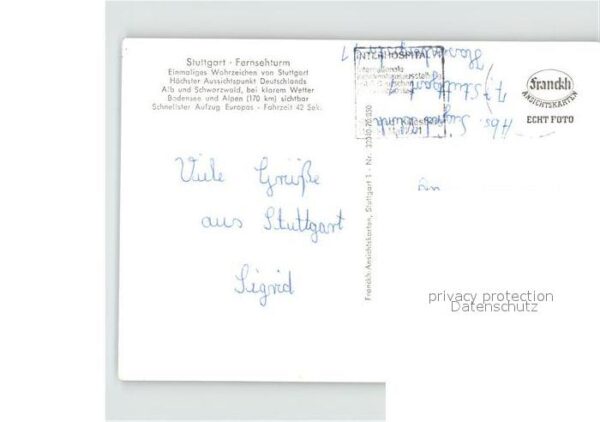 Stuttgart - Fernsehturm
Einmaliges Wahrzeichen von Stuttgart
Höchster Aussichtspunkt Deutschlands
Alb und Schwarzwald, bei klarem Wetter
Bodensee und Alpen (170 km) sichtbar
Schnellster Aufzug Europas - Fahrzeit 42 Sek.
Viele Grüße
aus Stuttgart
Sigrid
Franckh Ansichtskarten, Stuttgart 1 - Nr.
INTERHOSPITAL
Internationale
Abs. Sigrid
7 Stuttgart 1
Franckh
ANSICHTSKARTEN
ECHT FOTO
privacy protection
Datenschutz